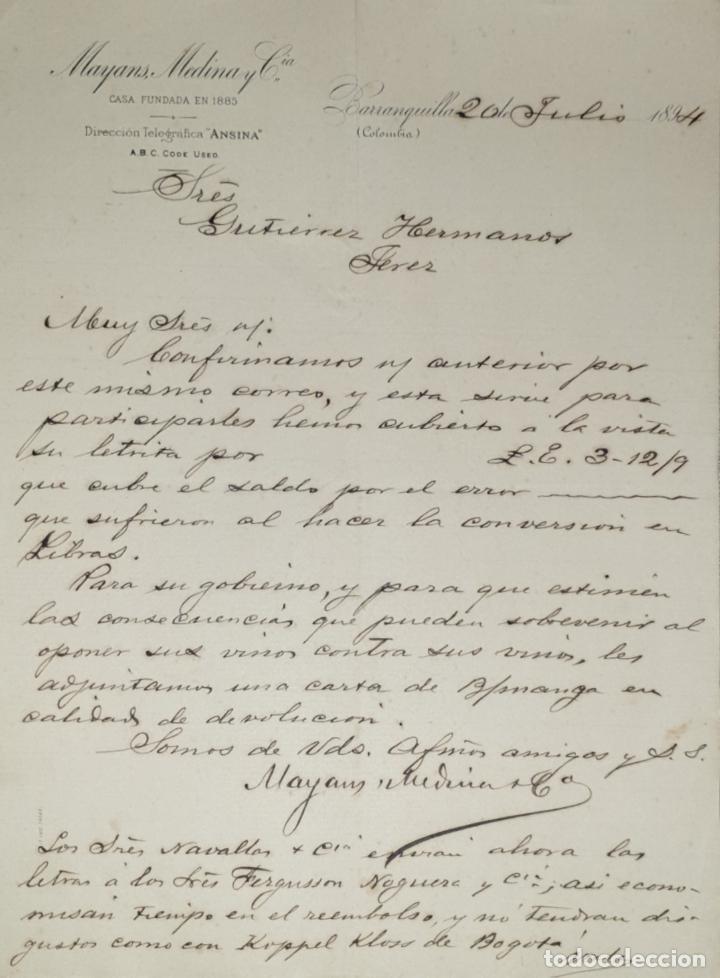 Mayans, Medina y Cia.
CASA FUNDADA EN 1885
Dirección Telegráfica "ANSINA"
A.B.C. CODE USED.
Barranquilla 20 de Julio 1894
(Colombia)
Srès
Gutiérrez Hermanos
Jerez
Muy Srès n/:
Confirmamos n/ anterior por
este mismo correo, y esta sirve para
participarles hemos cubierto á la vista
su letrita por L.E. 3-12/9
que cubre el saldo por el error
que sufrieron al hacer la conversión en
Libras.
Para su gobierno, y para que estimén
las consecuencias que pueden sobrevenir al
oponer sus vinos contra sus vinos, les
adjuntamos una carta de B/manga en
calidad de devolución.
Somos de Vds. Afmos amigos y S.S.
Mayans, Medina & Co
Los Srès Navallas & Cia envian ahora las
letras á los Srès Fergusson Noguera y Cia; asi econo-
misan tiempo en el reembolso, y no tendran dis-
gustos como con Koppel Kloss de Bogotá
todocoleccion